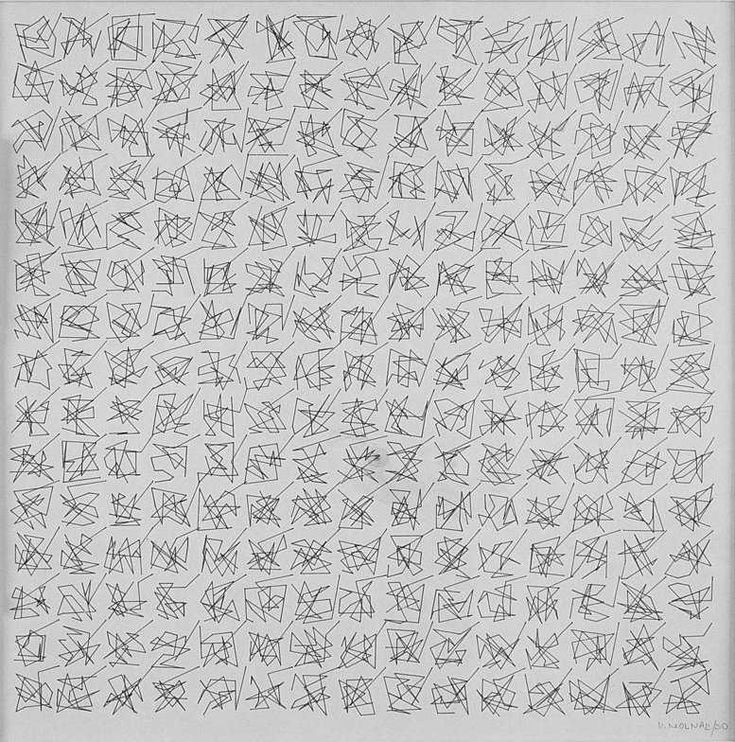 V. MOLNAR/80